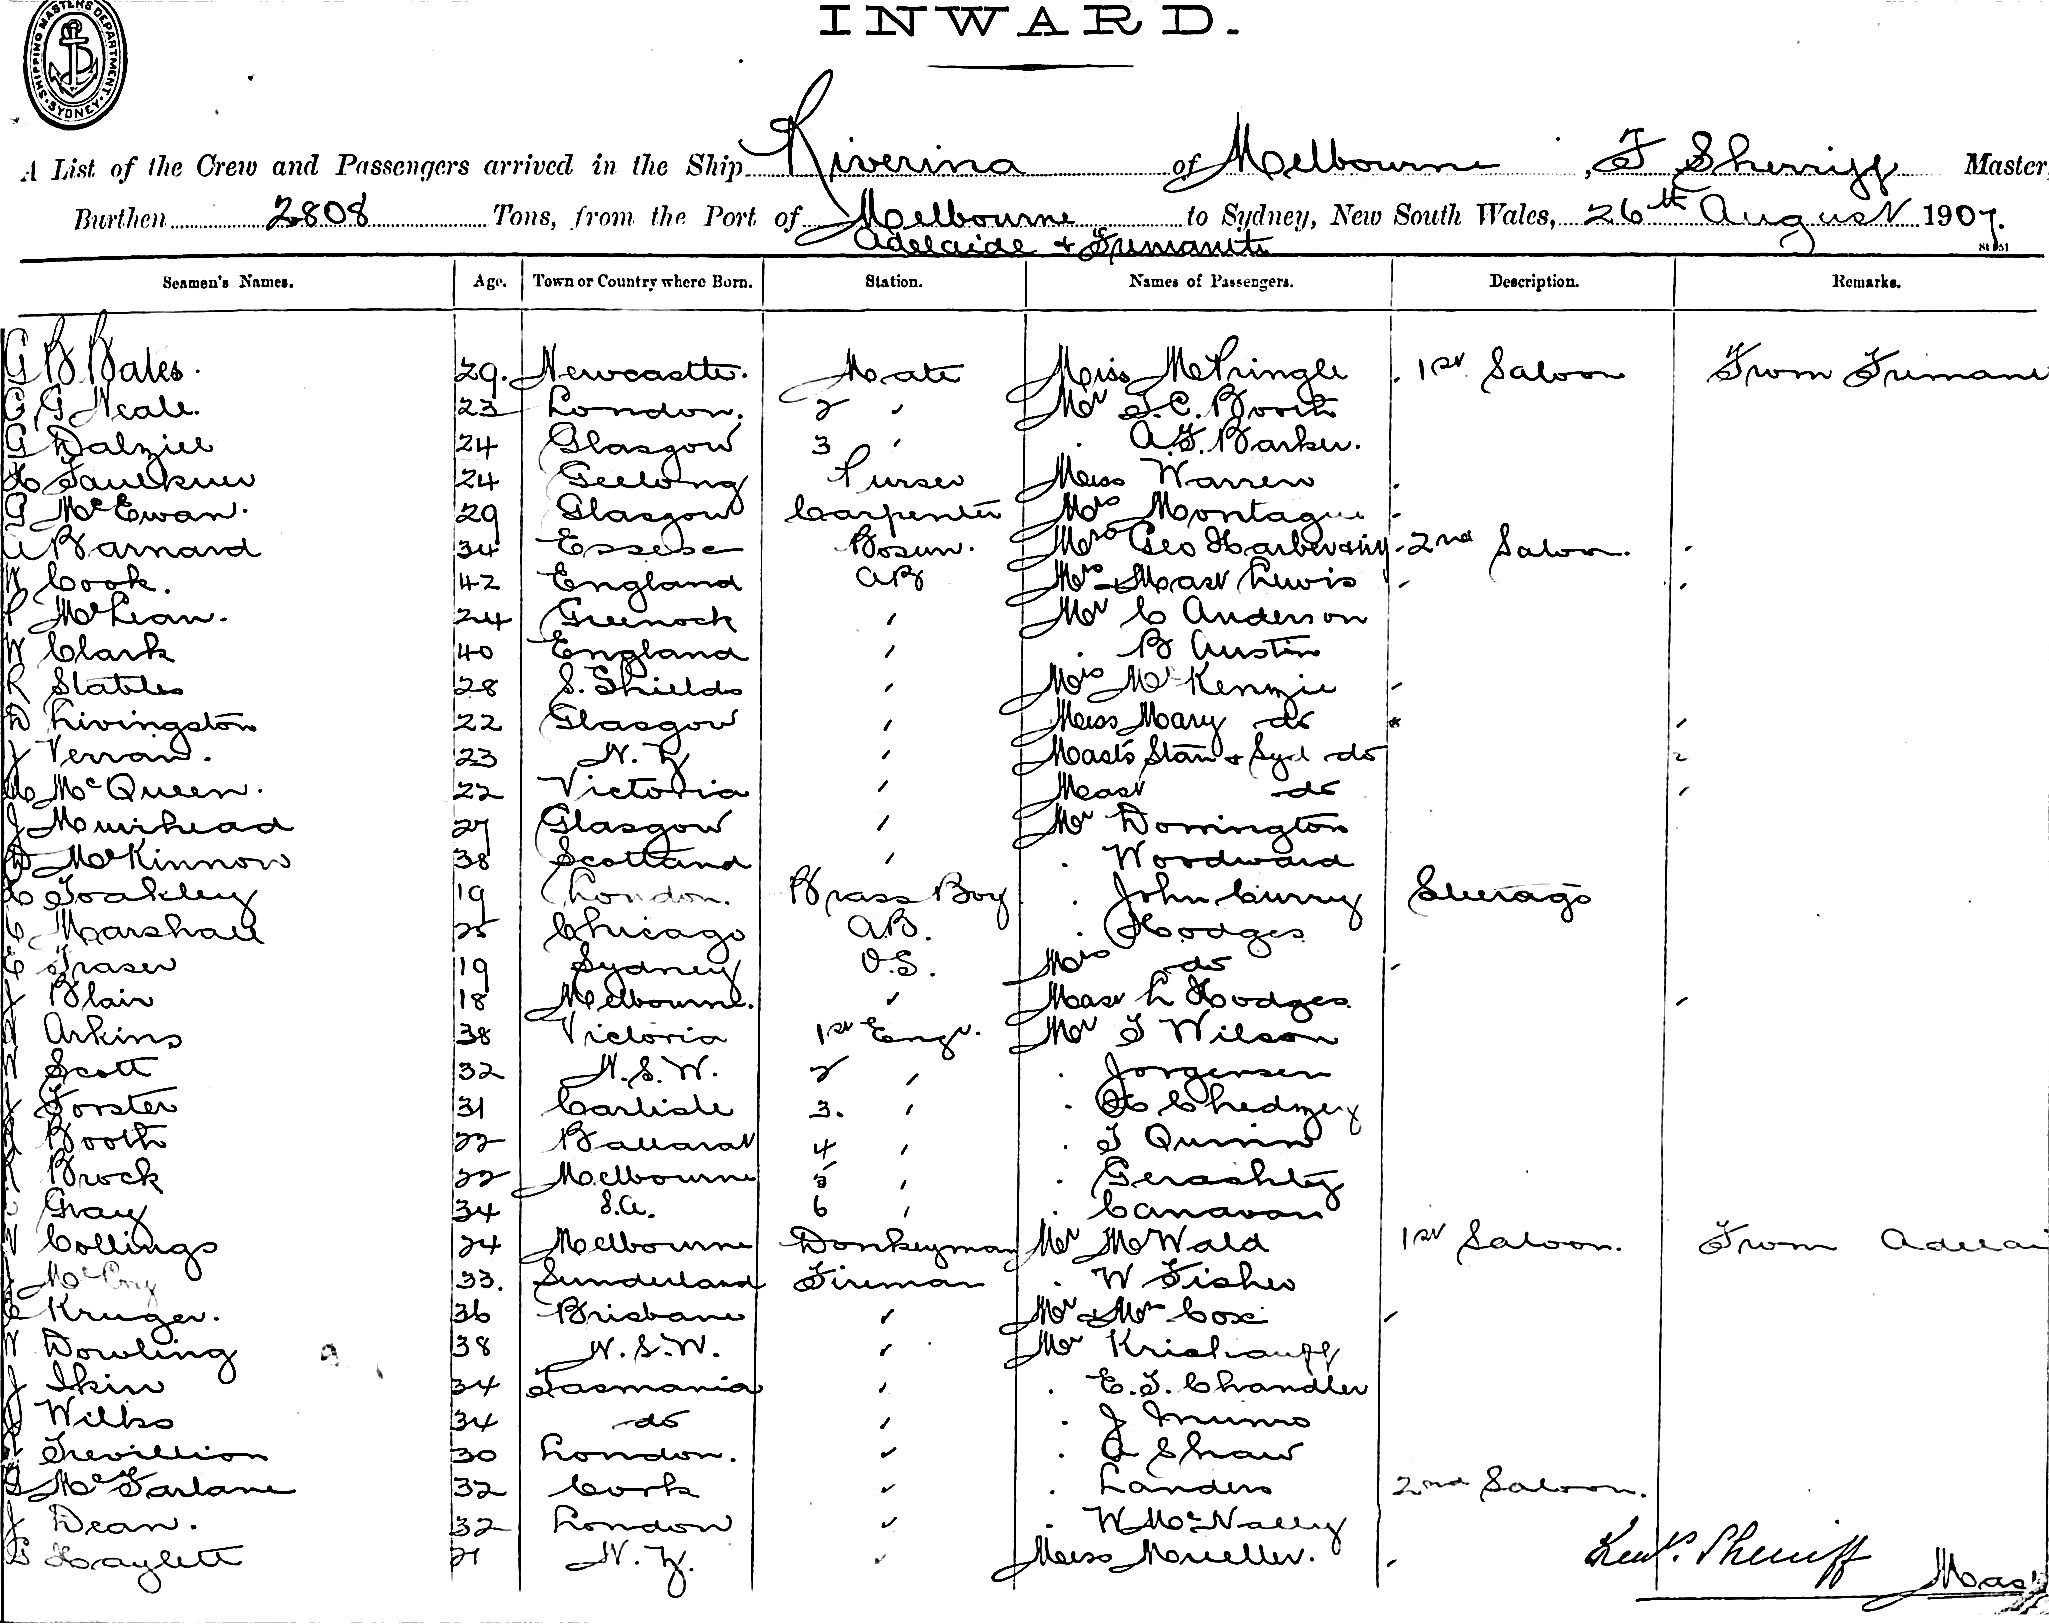 SHIPPING MASTERS DEPARTMENT · SYDNEY ·
INWARD.
A List of the Crew and Passengers arrived in the Ship Riverina of Melbourne, F Sherriff Master,
Burthen 2808 Tons, from the Port of Melbourne to Sydney, New South Wales, 26th August 1907.
Adelaide +
Seamen's Names. Age. Town or Country where Born. Station. Names of Passengers. Description. Remarks.
G B Bales. 29. Newcastle. Mate Miss McPringle 1st Saloon From
G Neale. 23 London. 2 " Mr T.C. Booth
G Dalziel 24 Glasgow 3 " . A.G. Barker.
H Faulkner 24 Geelong Purser Miss Warren
G McEwan. 29 Glasgow Carpenter Mrs Montague
Barnard 34 Essex Bosun. Mrs Geo 2nd Saloon.
W Cook. 42 England AB Mrs + Mast Lewis
P McLean. 24 Greenock " Mr C Anderson
W Clark 40 England " . B Austin
R Stables 28 S. Shields " Mrs McKenzie
D Livingston 22 Glasgow " Miss Mary do
J Verran. 23 N.Z " Masts Stan + Syd do
McQueen. 22 Victoria " Mast do
J Muirhead 27 Glasgow " Mr Dorrington
D McKinnon 38 Scotland " . Woodward
Toakley 19 London. Brass Boy . John Curry Steerage
C Marshall 25 Chicago AB. . Hodges
C Fraser 19 Sydney O.S. Mrs do
J Blair 18 Melbourne. " Mast L Hodges
Arkins 38 Victoria 1st Engr. Mr T Wilson
W Scott 32 N.S.W. 2 " . Jorgensen
J Forster 31 Carlisle 3. " . H Chedzey
Booth 22 Ballarat 4 " . T Quinn
Brock 22 Melbourne 5 " . Gerashty
Gray 34 S.A. 6 " . Canavan
W Collings 24 Melbourne Donkeyman Mr McWald 1st Saloon. From Adelai
33. Sunderland Fireman . W Fisher
C Kruger. 36 Brisbane " Mr + Mrs Cox
W Dowling 38 N.S.W. " Mr Krichauff
J Ikin 34 Tasmania " . E.T. Chandler
J Wilks 34 do " . J Munro
Trevillion 30 London. " . A Shaw
G McFarlane 32 Cork " . Landers 2nd Saloon.
J Dean. 32 London " . W McNally
Haylett 21 N.Z. " Miss Mueller.
Sherriff
Mas